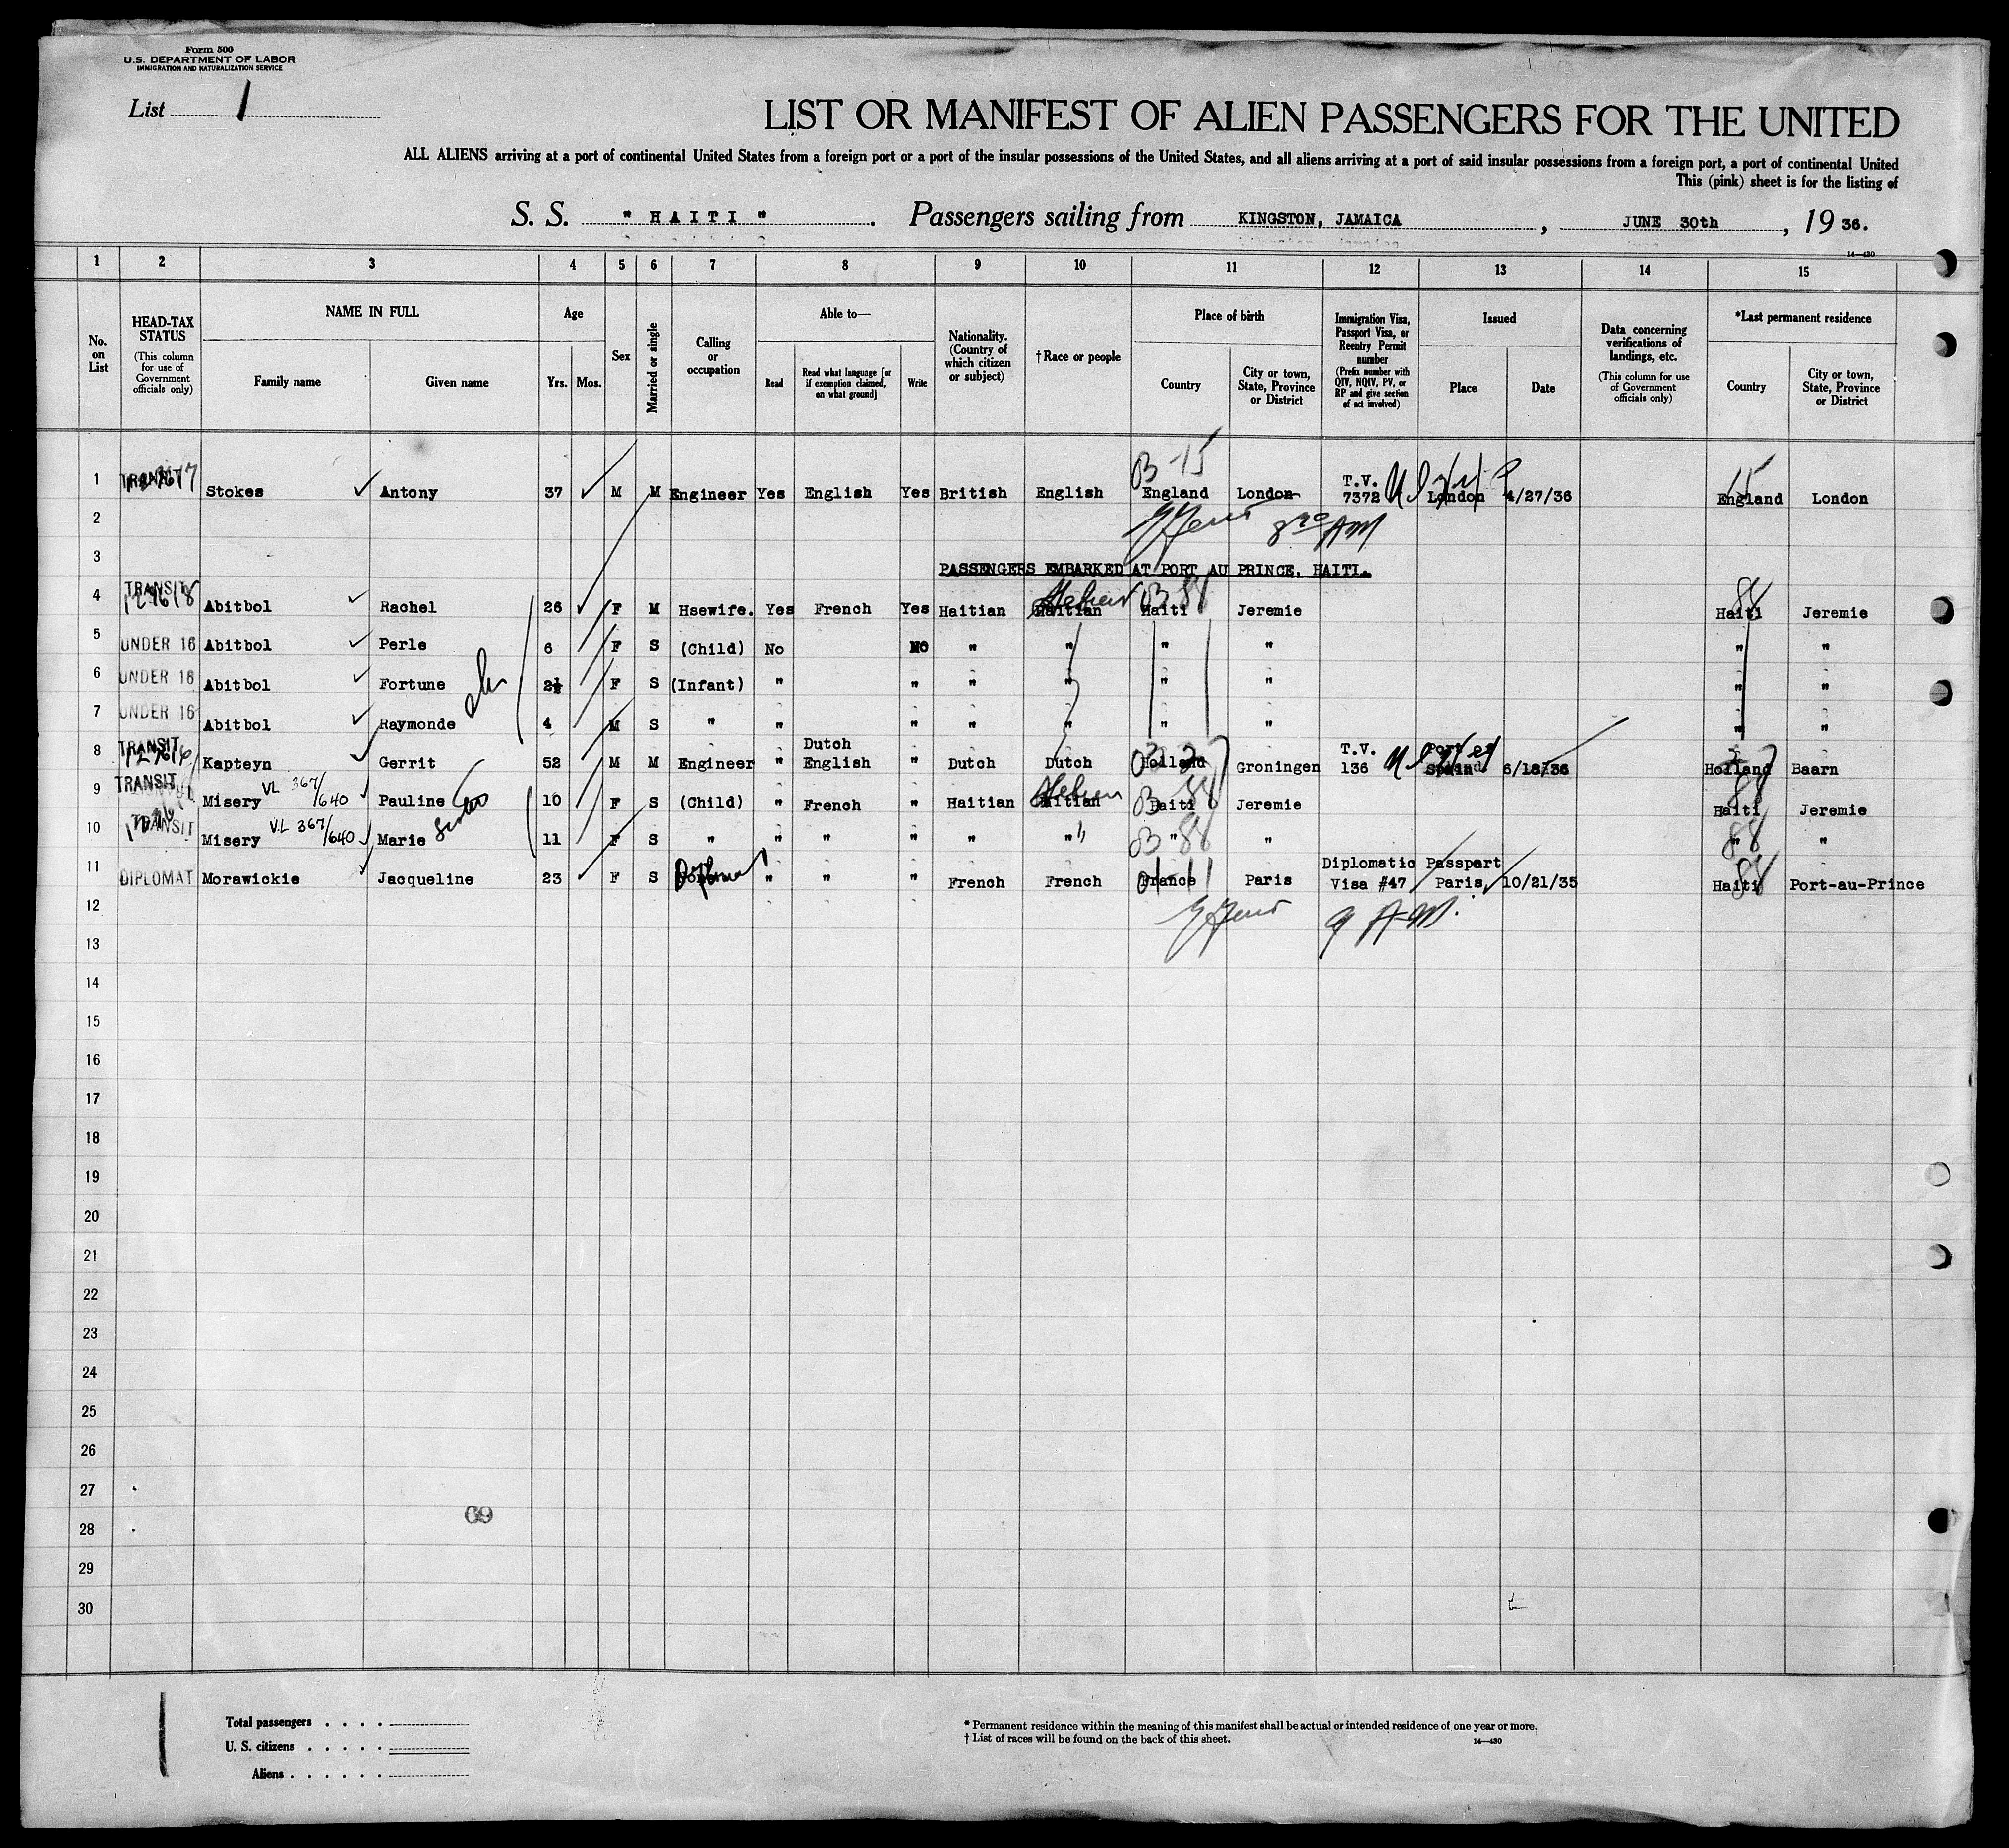 Form 500
U.S. DEPARTMENT OF LABOR
IMMIGRATION AND NATURALIZATION SERVICE
List 1
LIST OR MANIFEST OF ALIEN PASSENGERS FOR THE UNITED
ALL ALIENS arriving at a port of continental United States from a foreign port or a port of the insular possessions of the United States, and all aliens arriving at a port of said insular possessions from a foreign port, a port of continental United
This (pink) sheet is for the listing of
S. S. " HAITI ". Passengers sailing from KINGSTON, JAMAICA, JUNE 30th, 19 36.
14—430
1 2 3 4 5 6 7 8 9 10 11 12 13 14 15
No. on List
HEAD-TAX STATUS
(This column for use of Government officials only)
NAME IN FULL
Family name Given name
Age
Yrs. Mos.
Sex
Married or single
Calling or occupation
Able to—
Read
Read what language [or if exemption claimed, on what ground]
Write
Nationality. (Country of which citizen or subject)
† Race or people
Place of birth
Country
City or town, State, Province or District
Immigration Visa, Passport Visa, or Reentry Permit number
(Prefix number with QIV, NQIV, PV, or RP and give section of act involved)
Issued
Place Date
Data concerning verifications of landings, etc.
(This column for use of Government officials only)
*Last permanent residence
Country
City or town, State, Province or District
B 15
1 TRANSIT Stokes Antony 37 M M Engineer Yes English Yes British English England London T.V. 7372 London 4/27/36 15 England London
2
3 PASSENGERS EMBARKED AT PORT AU PRINCE, HAITI.
4 TRANSIT 129618 Abitbol Rachel 26 F M Hsewife. Yes French Yes Haitian Haitian Hebrew B 88 Haiti Jeremie 88 Haiti Jeremie
5 UNDER 16 Abitbol Perle 6 F S (Child) No NO " " " " " "
6 UNDER 16 Abitbol Fortune 2½ F S (Infant) " " " " " " " "
7 UNDER 16 Abitbol Raymonde 4 M S " " " " " " " " "
8 TRANSIT Kapteyn Gerrit 52 M M Engineer " Dutch English " Dutch Dutch Holland Groningen T.V. 136 Port of Spain 6/18/36 Holland Baarn
9 TRANSIT Misery VL 367/640 Pauline 10 F S (Child) " French " Haitian Haitian Hebrew B 88 Haiti Jeremie 88 Haiti Jeremie
10 TRANSIT Misery VL 367/640 Marie 11 F S " " " " " " B 88 " " 88 " "
11 DIPLOMAT Morawickie Jacqueline 23 F S " " " French French France Paris Diplomatic Passport Visa #47 Paris, 10/21/35 88 Haiti Port-au-Prince
12 9 A-M.
13
14
15
16
17
18
19
20
21
22
23
24
25
26
27
28
29
30
Total passengers
U. S. citizens
Aliens
* Permanent residence within the meaning of this manifest shall be actual or intended residence of one year or more.
† List of races will be found on the back of this sheet.
14—430